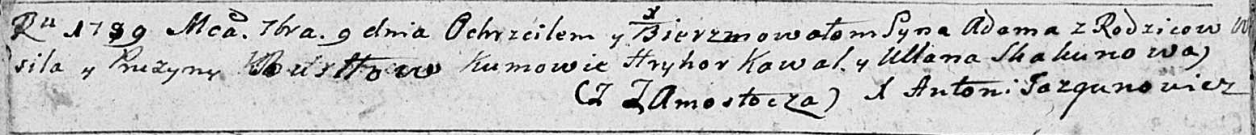 Ru 1789 Mca. 7bra. 9 dnia Ochrzciłem y Bierzmowałem Syna Adama z Rodzicow Wa
sila y Pruzyny Kumowie Hryhor Kawal. y Ullana Skakunowa
(Z Zamostocza) X Antoni Jazgunowicz